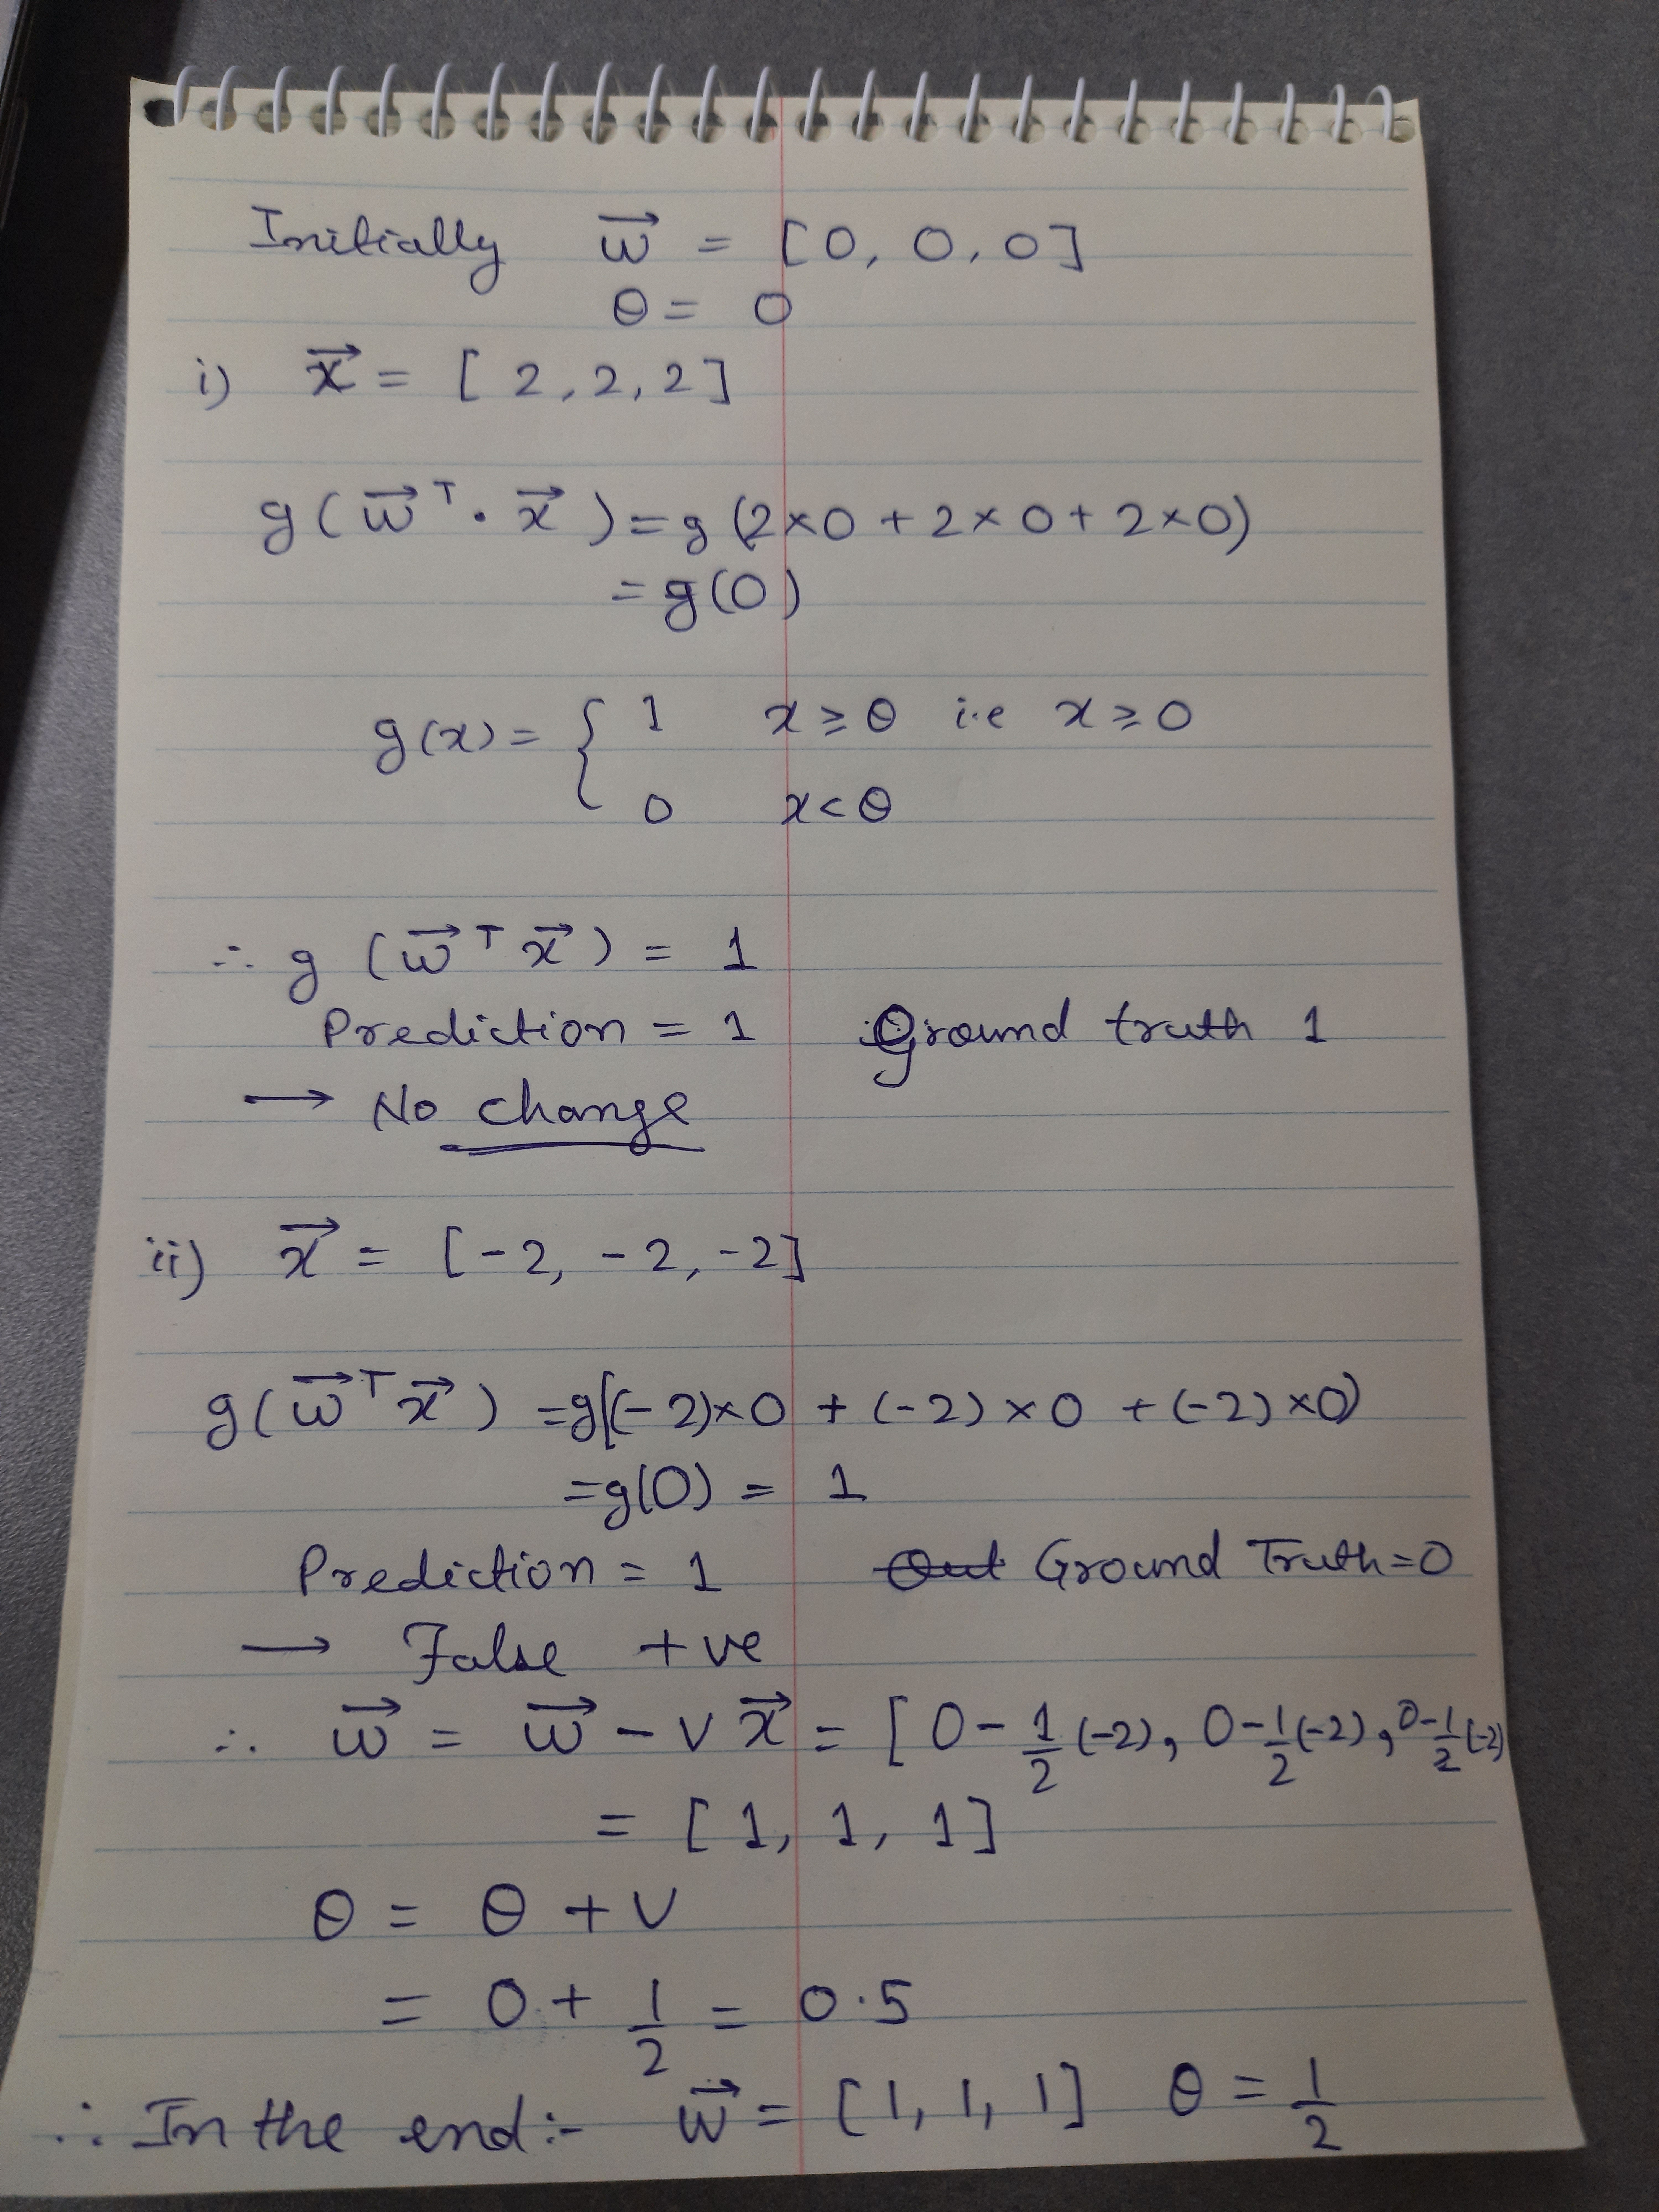 Initially w⃗ = [0, 0, 0]
θ = 0
i) x⃗ = [2, 2, 2]
g(w⃗ᵀ · x⃗) = g(2×0 + 2×0 + 2×0)
= g(0)
g(x) = { 1 x ≥ θ i.e x ≥ 0
0 x < θ
∴ g(w⃗ᵀ x⃗) = 1
Prediction = 1 Ground truth 1
→ No change
ii) x⃗ = [-2, -2, -2]
g(w⃗ᵀ x⃗) = g((-2)×0 + (-2)×0 + (-2)×0)
= g(0) = 1
Prediction = 1 Out Ground Truth = 0
→ False +ve
∴ w⃗ = w⃗ - ν x⃗ = [0 - 1/2 (-2), 0 - 1/2 (-2), 0 - 1/2 (-2)
= [1, 1, 1]
θ = θ + ν
= 0 + 1/2 = 0.5
∴ In the end:- w⃗ = [1, 1, 1] θ = 1/2